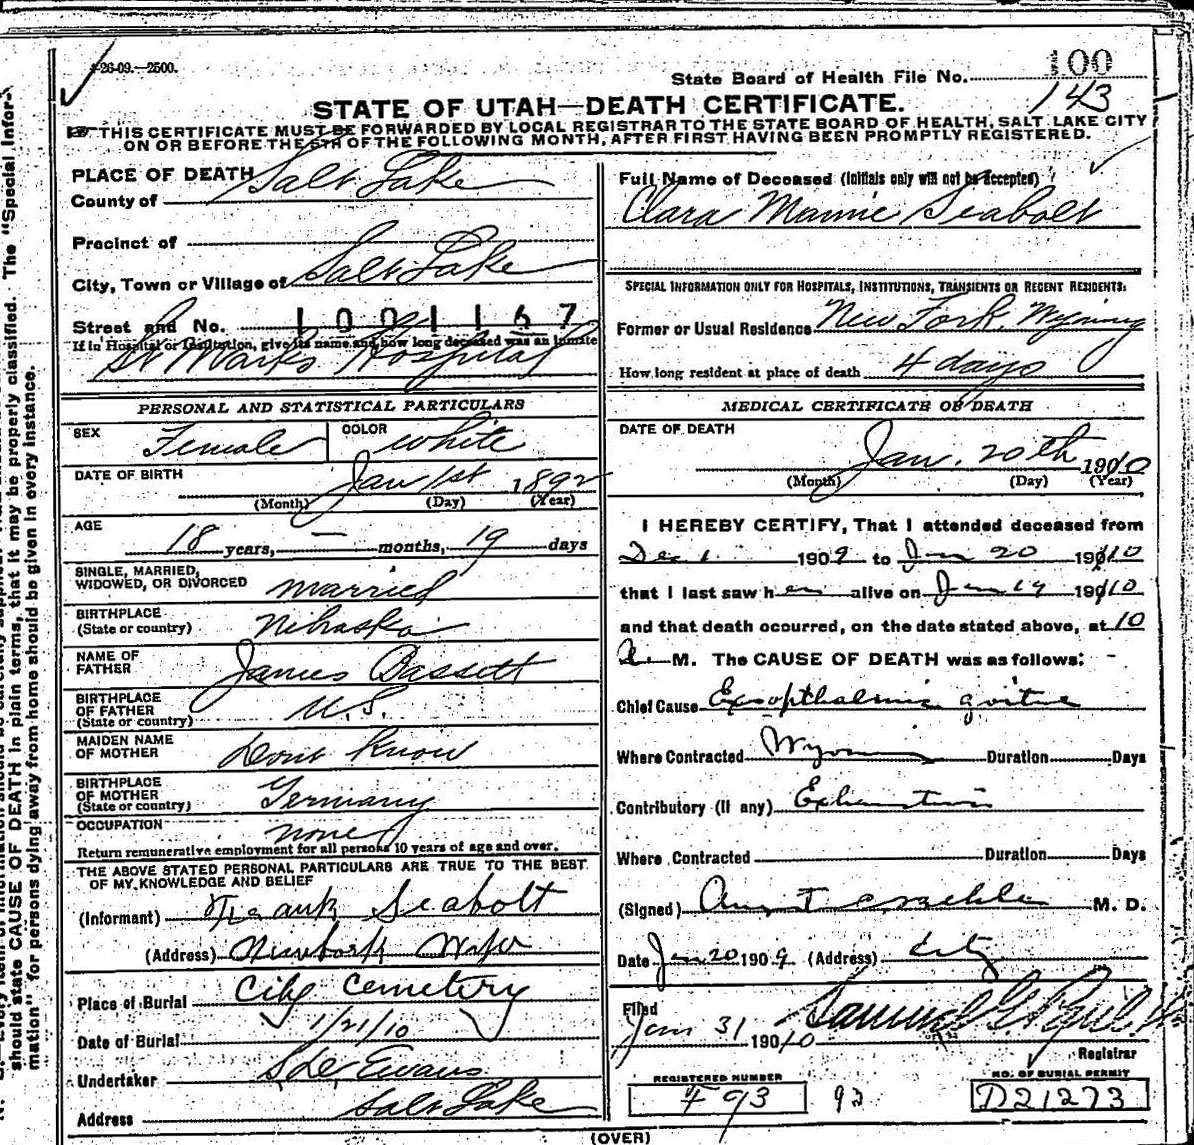 4-26-09.—2500.
State Board of Health File No. 100
143
STATE OF UTAH—DEATH CERTIFICATE.
THIS CERTIFICATE MUST BE FORWARDED BY LOCAL REGISTRAR TO THE STATE BOARD OF HEALTH, SALT LAKE CITY
ON OR BEFORE THE 5TH OF THE FOLLOWING MONTH, AFTER FIRST HAVING BEEN PROMPTLY REGISTERED.
PLACE OF DEATH
County of Salt Lake
Precinct of
City, Town or Village of Salt Lake
Street and No. 1001167
If in Hospital or Institution, give its name and how long deceased was an inmate
St Marks Hospital
PERSONAL AND STATISTICAL PARTICULARS
SEX Female COLOR White
DATE OF BIRTH Jan 1st 1892
(Month) (Day) (Year)
AGE
18 years, — months, 19 days
SINGLE, MARRIED,
WIDOWED, OR DIVORCED married
BIRTHPLACE
(State or country) Nebraska
NAME OF
FATHER James Bassett
BIRTHPLACE
OF FATHER
(State or country) U.S.
MAIDEN NAME
OF MOTHER Dont Know
BIRTHPLACE
OF MOTHER
(State or country) Germany
OCCUPATION none
Return remunerative employment for all persons 10 years of age and over.
THE ABOVE STATED PERSONAL PARTICULARS ARE TRUE TO THE BEST
OF MY KNOWLEDGE AND BELIEF
(Informant) Frank Seabolt
(Address) Newfork Wyo
Place of Burial City Cemetery
Date of Burial 1/21/10
Undertaker S. D. Evans
Address Salt Lake
Full Name of Deceased (Initials only will not be accepted)
Clara Mamie Seabolt
SPECIAL INFORMATION ONLY FOR HOSPITALS, INSTITUTIONS, TRANSIENTS OR RECENT RESIDENTS:
Former or Usual Residence New Fork, Wyming
How long resident at place of death 4 days
MEDICAL CERTIFICATE OF DEATH
DATE OF DEATH
Jan. 20th 1910
(Month) (Day) (Year)
I HEREBY CERTIFY, That I attended deceased from
Dec 1 1909 to Jan 20 1910
that I last saw her alive on Jan 19 1910
and that death occurred, on the date stated above, at 10
A. M. The CAUSE OF DEATH was as follows:
Chief Cause Exopthalmic goitre
Where Contracted Wyoming Duration Days
Contributory (If any) Exhaustion
Where Contracted Duration Days
(Signed) M. D.
Date Jan 20 1909 (Address) City
Filed
Jan 31 1910 Samuel G. Paul
Registrar
REGISTERED NUMBER
F 93
92
NO. OF BURIAL PERMIT
D21273
(OVER)
should state CAUSE OF DEATH in plain terms, that it may be properly classified. The "Special Infor-
mation" for persons dying away from home should be given in every instance.